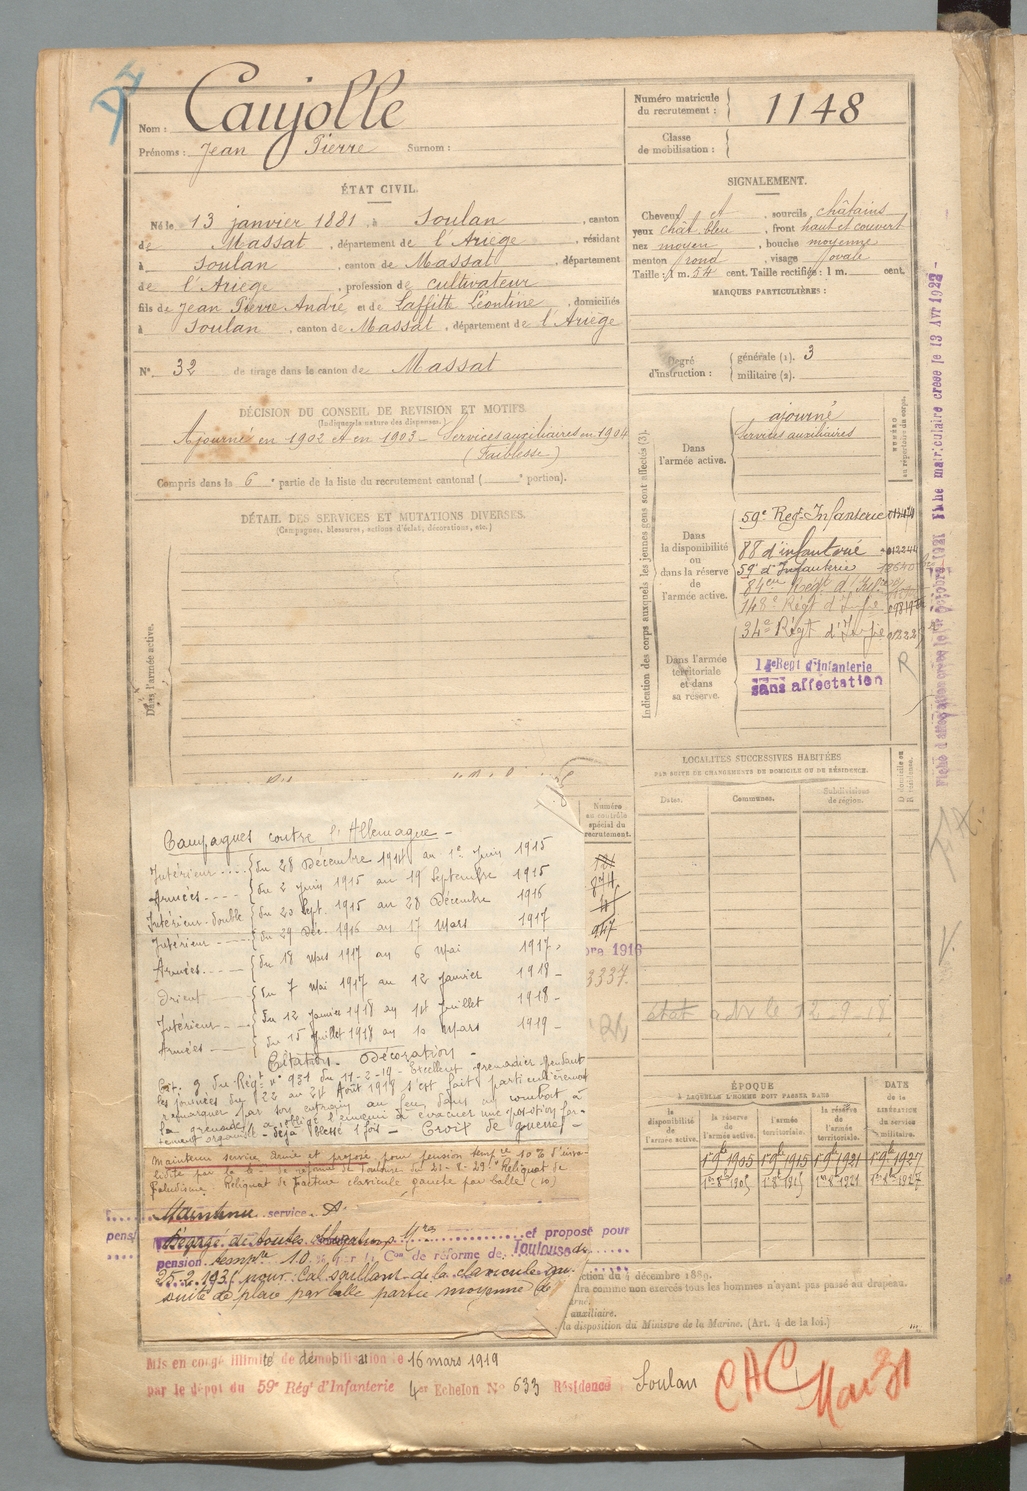 Nom : Caujolle
Prénoms : Jean Pierre Surnom :
Numéro matricule du recrutement : 1148
Classe de mobilisation :
ÉTAT CIVIL.
Né le 13 janvier 1881, à Soulan, canton
de Massat, département de l'Ariège, résidant
à Soulan, canton de Massat, département
de l'Ariège, profession de cultivateur
fils de Jean Pierre André et de Laffitte Léontine, domiciliés
à Soulan, canton de Massat, département de l'Ariège
N° 32 de tirage dans le canton de Massat
SIGNALEMENT.
Cheveux et sourcils châtains
yeux chât bleu, front haut et couvert
nez moyen, bouche moyenne
menton rond, visage ovale
Taille : 1 m. 54 cent. Taille rectifiée : 1 m. cent.
MARQUES PARTICULIÈRES :
Degré d'instruction : générale (1). 3
militaire (2).
DÉCISION DU CONSEIL DE REVISION ET MOTIFS
(Indiquer la nature des dispenses.)
Ajourné en 1902 et en 1903 – Services auxiliaires en 1904
(Faiblesse)
Compris dans la 6e partie de la liste du recrutement cantonal ( e portion).
DÉTAIL DES SERVICES ET MUTATIONS DIVERSES.
(Campagnes, blessures, actions d'éclat, décorations, etc.)
Dans l'armée active.
Indication des corps auxquels les jeunes gens sont affectés (3).
NUMÉRO au répertoire du corps.
Dans l'armée active.
ajourné
Services auxiliaires
Dans la disponibilité ou dans la réserve de l'armée active.
59e Reg. Infanterie
88 d'infanterie 012244
59e d'Infanterie
84e Régt d'Infie
148e Régt d'Infie
34e Régt d'Infie
Dans l'armée territoriale et dans sa réserve.
14e Regt d'Infanterie
sans affectation
R
Fiche matriculaire créée le 13 Avr 1922
LOCALITÉS SUCCESSIVES HABITÉES
PAR SUITE DE CHANGEMENTS DE DOMICILE OU DE RÉSIDENCE.
Dates. Communes. Subdivisions de région. D domicile ou R résidence.
Numéro au contrôle spécial du recrutement.
874
947
3337.
Campagnes contre l'Allemagne –
Intérieur .... du 28 Décembre 1914 au 1er Juin 1915
Armées .... du 2 Juin 1915 au 19 Septembre 1915
Intérieur-double du 20 Sept. 1915 au 28 Décembre 1916
Intérieur du 29 Déc. 1916 au 17 Mars 1917
Armées du 18 Mars 1917 au 6 Mai 1917
Orient du 7 Mai 1917 au 12 Janvier 1918 –
Intérieur du 12 Janvier 1918 au 14 Juillet 1918 –
Armées du 15 Juillet 1918 au 10 Mars 1919 –
Citation – Décoration –
Cit. g du Régt n° 931 du 11-2-19 – Excellent grenadier pendant
les journées du 22 au 24 Août 1918 s'est fait particulièrement
remarquer par son entrain au feu dans un combat à
la grenade a obligé l'ennemi à évacuer une position for-
tement organisée – déjà blessé 1 fois – Croix de guerre –
Maintenu service armé et proposé pour pension tempre 10 % d'inva-
lidité par la Con de réforme de Toulouse du 21-8-29 Reliquat de
Paludisme. Reliquat de fracture clavicule gauche par balle (10)
Maintenu service A.
et proposé pour
pension tempre 10 par la Con de réforme de Toulouse du
25.2.1931 pour : Cal saillant de la clavicule gu.
suite de plaie par balle partie moyenne de
ÉPOQUE
À LAQUELLE L'HOMME DOIT PASSER DANS
la disponibilité de l'armée active. la réserve de l'armée active. l'armée territoriale. la réserve de l'armée territoriale.
DATE de la LIBÉRATION du service militaire.
1r 9b 1905 1r 9b 1915 1r 9b 1921 1r 9b 1927
ction du 4 décembre 1889.
dra comme non exercés tous les hommes n'ayant pas passé au drapeau.
auxiliaire.
la disposition du Ministre de la Marine. (Art. 4 de la loi.)
Mis en congé illimité de démobilisation le 16 mars 1919
par le dépôt du 59e Régt d'Infanterie 4er Echelon N° 633 Résidence Soulan
CAC
Mar 31